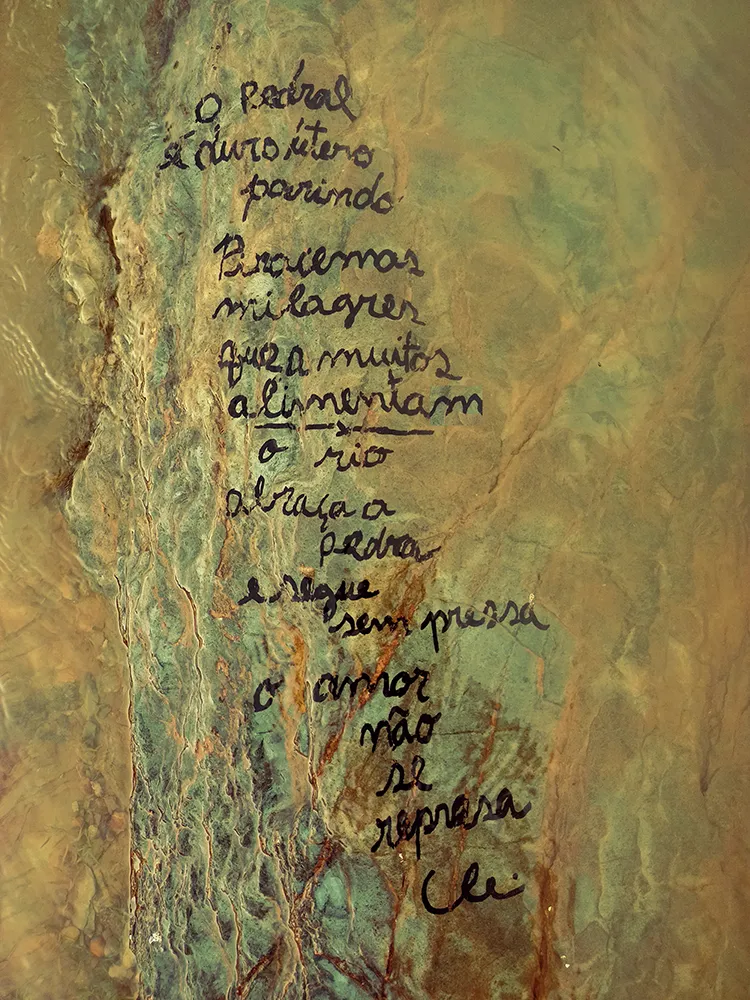 O Pedral
é duro útero
parindo
Piracemas
milagres
que a muitos
alimentam
o rio
abraça a
pedra
e segue
sem pressa
o amor
não
se
represa